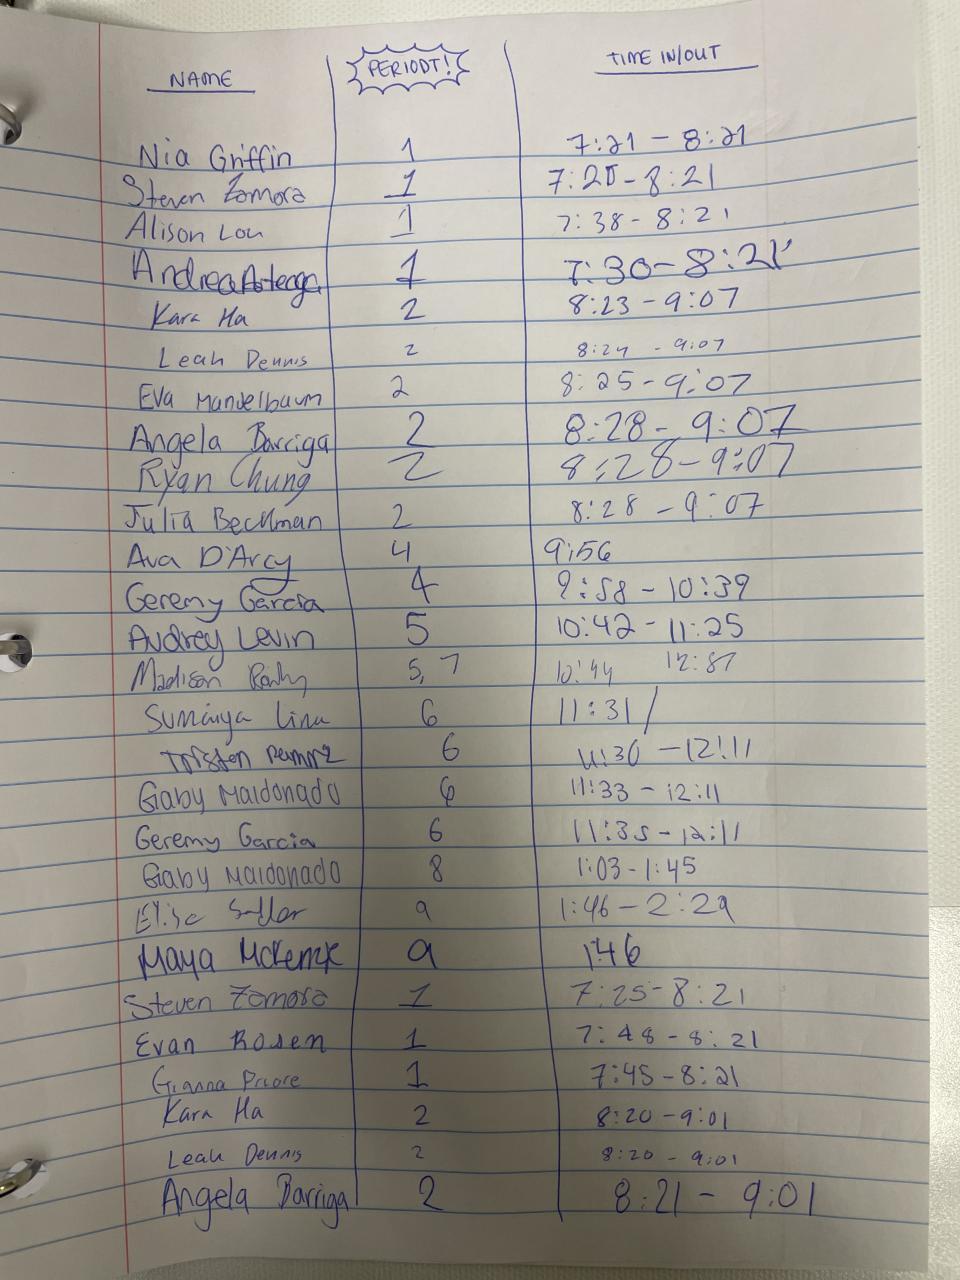 NAME PERIODT! TIME IN/OUT
Nia Griffin 1 7:21 - 8:21
Steven Zamora 1 7:25 - 8:21
Alison Lou 1 7:38 - 8:21
Andrea Arteaga 1 7:30 - 8:21
Kara Ha 2 8:23 - 9:07
Leah Dennis 2 8:24 - 9:07
Eva Mandelbaum 2 8:25 - 9:07
Angela Barriga 2 8:28 - 9:07
Ryan Chung 2 8:28 - 9:07
Julia Beckman 2 8:28 - 9:07
Ava D'Arcy 4 9:56
Geremy Garcia 4 9:58 - 10:39
Audrey Levin 5 10:42 - 11:25
Madison 5, 7 10:44
Sumaiya 6 11:31 /
Tristen 6 11:30 - 12:11
Gaby Maldonado 6 11:33 - 12:11
Geremy Garcia 6 11:35 - 12:11
Gaby Maldonado 8 1:03 - 1:45
Elise 9 1:46 - 2:29
Maya McKenzie 9 1:46
Steven Zamora 1 7:25 - 8:21
Evan Rosen 1 7:48 - 8:21
Gianna Priore 1 7:45 - 8:21
Kara Ha 2 8:20 - 9:01
Leah Dennis 2 8:20 - 9:01
Angela Barriga 2 8:21 - 9:01